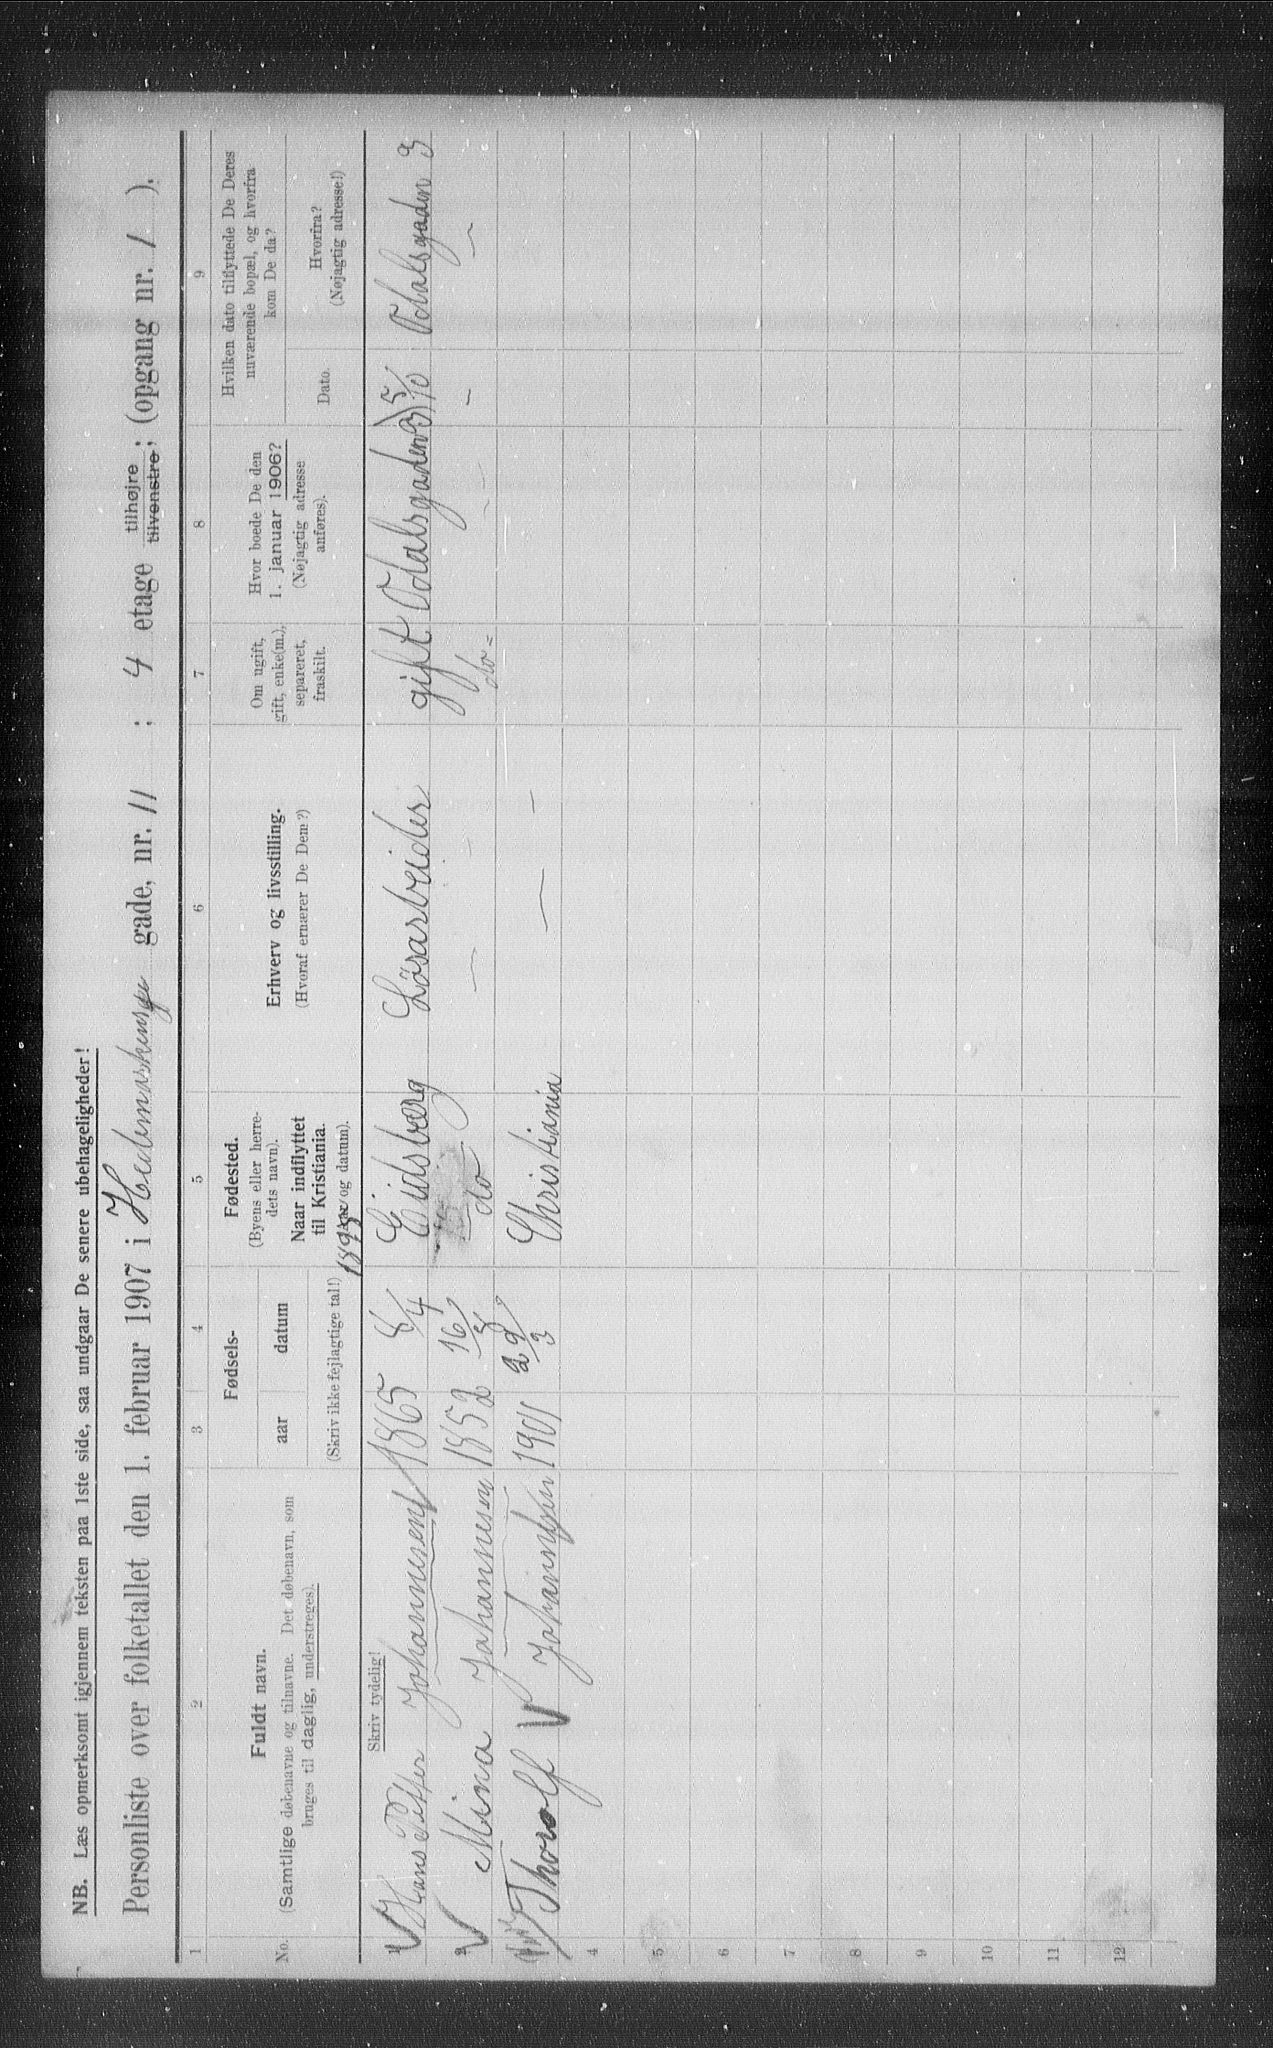 NB. Læs opmerksomt igjennem teksten paa 1ste side, saa undgaar De senere ubehageligheder!
Personliste over folketallet den 1. februar 1907 i Hedemarkensge gade, nr. 11 : 4 etage tilhøjre tilvenstre; (opgang nr. 1 ).
1 2 3 4 5 6 7 8 9
No.
Fuldt navn.
(Samtlige døbenavne og tilnavne. Det døbenavn, som
bruges til daglig, understreges).
Fødsels-
aar datum
(Skriv ikke fejlagtige tal!)
Fødested.
(Byens eller herre-
dets navn).
Naar indflyttet
til Kristiania.
(Aar og datum).
Erhverv og livsstilling.
(Hvoraf ernærer De Dem?)
Om ugift,
gift, enke(m.),
separeret,
fraskilt.
Hvor boede De den
1. januar 1906?
(Nøjagtig adresse
anføres).
Hvilken dato tilflyttede De Deres
nuværende bopæl, og hvorfra
kom De da?
Dato.
Hvorfra?
(Nøjagtig adresse!)
Skriv tydelig!
1895
1 Hans Petter Johannesen 1865 8/4 Eidsberg Lösarbeider gift Odalsgaden 3 5/10 Odalsgaden 3
2 Mina Johannesen 1852 16/5 do — — do = — — — —
3 Thorolf Johannesen 1901 29/3 Christiania — —
4
5
6
7
8
9
10
11
12